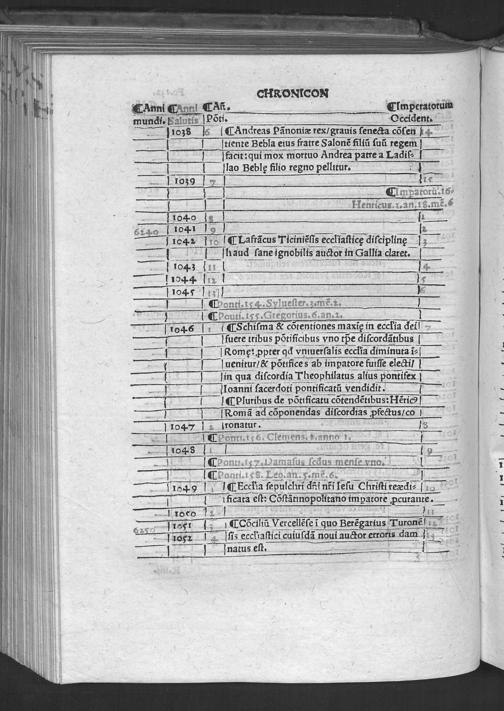 CHRONICON
¶Anni ¶Anni ¶Añ. ¶Imperatorum
mundi. Salutis Põti. Occident.
1038 6 ¶Andreas Pãnoniæ rex/grauis senecta cõsen 14
tiente Bebla eius fratre Salonẽ filiũ suũ regem
facit: qui mox mortuo Andrea patre a Ladis/
lao Beblę filio regno pellitur.
1039 7 15
¶Imparorũ.16.
Henricus.2.an.18.mẽ.6
1040 8 1
6240 1041 9 2
1042 10 ¶Lafrãcus Ticiniẽsis eccliasticę disciplinę 3
haud sane ignobilis auctor in Gallia claret.
1043 11 4
1044 12 5
1045 13 6
¶Ponti.154.Syluester.3.mẽ.2.
¶Ponti.155.Gregorius.6.an.2.
1046 1 ¶Schisma & cõtentiones maxię in ecclia dei 7
fuere tribus põtificibus vno tpe discordãtibus
Romę: ꝓpter qđ vniuersalis ecclia diminuta i
uenitur/& põtifices ab impatore fuisse electi/
in qua discordia Theophilatus alius pontifex
Ioanni sacerdoti pontificatũ vendidit.
¶Pluribus de põtificatu cõtendẽtibus: Hẽric9
Romã ad cõponendas discordias ꝓfectus/co
1047 2 ronatur. 8
¶Ponti.156.Clemens.2.anno 1.
1048 1 9
¶Ponti.157.Damasus scđus mense vno.
¶Ponti.158.Leo.an.5.mẽ.6.
1049 1 ¶Ecclia sepulchri dñi nři Iesu Christi reædi/
ficata est: Cõstãtinopolitano impatore ꝓcurante.
1050 2
6250 1051 3 ¶Cõciliũ Vercellẽse i quo Berẽgarius Turonẽ 12
1052 4 sis eccliastici cuiusdã noui auctor erroris dam
natus est.